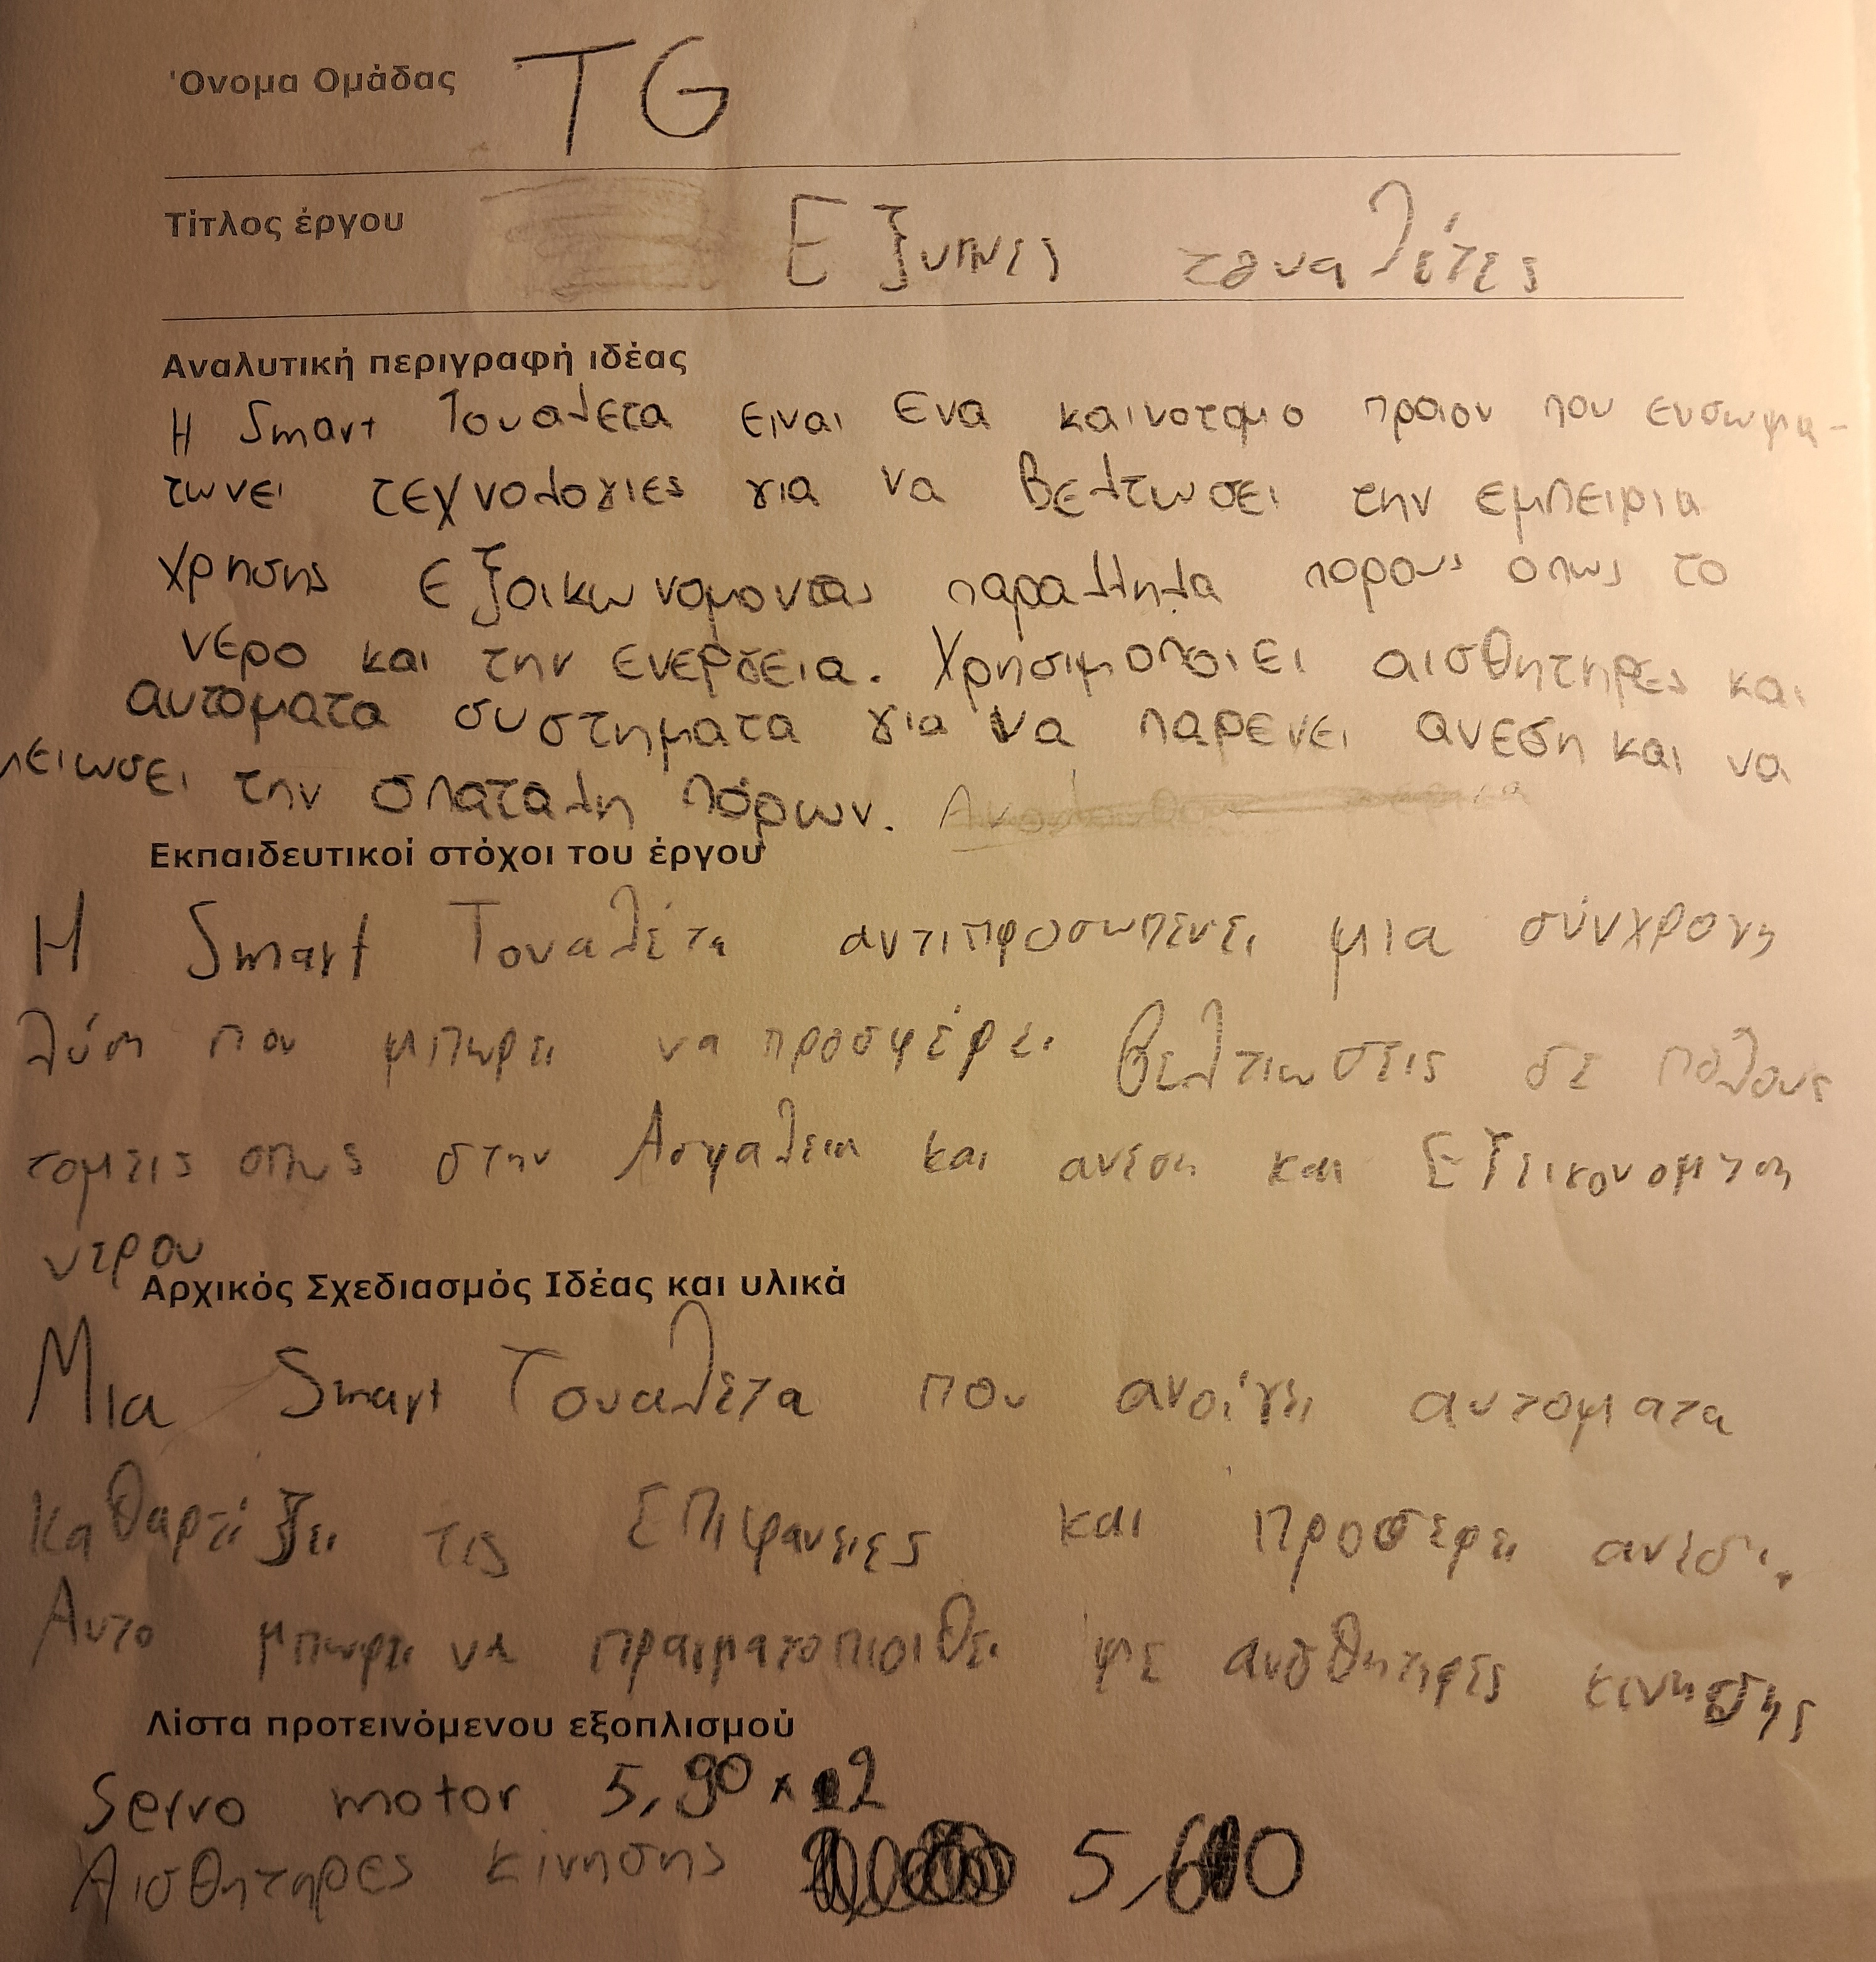 Όνομα Ομάδας TG
Τίτλος έργου Εξυπνες τουαλέτες
Αναλυτική περιγραφή ιδέας
Η Smart Τουαλετα ειναι ενα καινοτομο προιον που ενσωμα-
τωνει τεχνολογιες για να βελτωσει την εμπειρια
χρησης εξοικωνομοντας παραλληλα πορους οπως το
νερο και την ενεργεια. Χρησιμοποιει αισθητηρες και
αυτοματα συστηματα για να παρενει ανεση και να
μειωσει την σπαταλη πόρων.
Εκπαιδευτικοί στόχοι του έργου
Η Smart Τουαλέτα αντιπροσωπευει μια σύνχρονη
λύση που μπωρει να προσφέρει βελτιωσεις σε πολους
τομεις οπως στην Ασφαλεια και ανεση και Εξεικονομηση
νερου
Αρχικός Σχεδιασμός Ιδέας και υλικά
Μια Smart Τουαλετα που ανοίγει αυτοματα
τις Επιφανειες και προσερει
Αυτο μπωρει να πραγματοπιοιθει με αισθητηρες κινησης
Λίστα προτεινόμενου εξοπλισμού
Servo motor 5,90 x 2
Αισθητηρες κίνησης 5,60